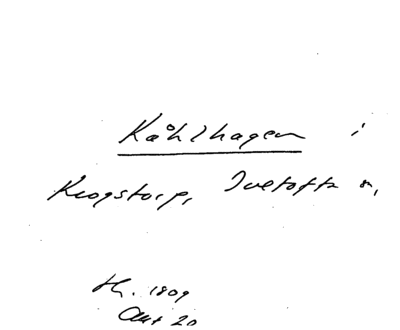 Kåhlhagen i
Krogstorp, Tvetofta s,
H. 1809
Akt 20